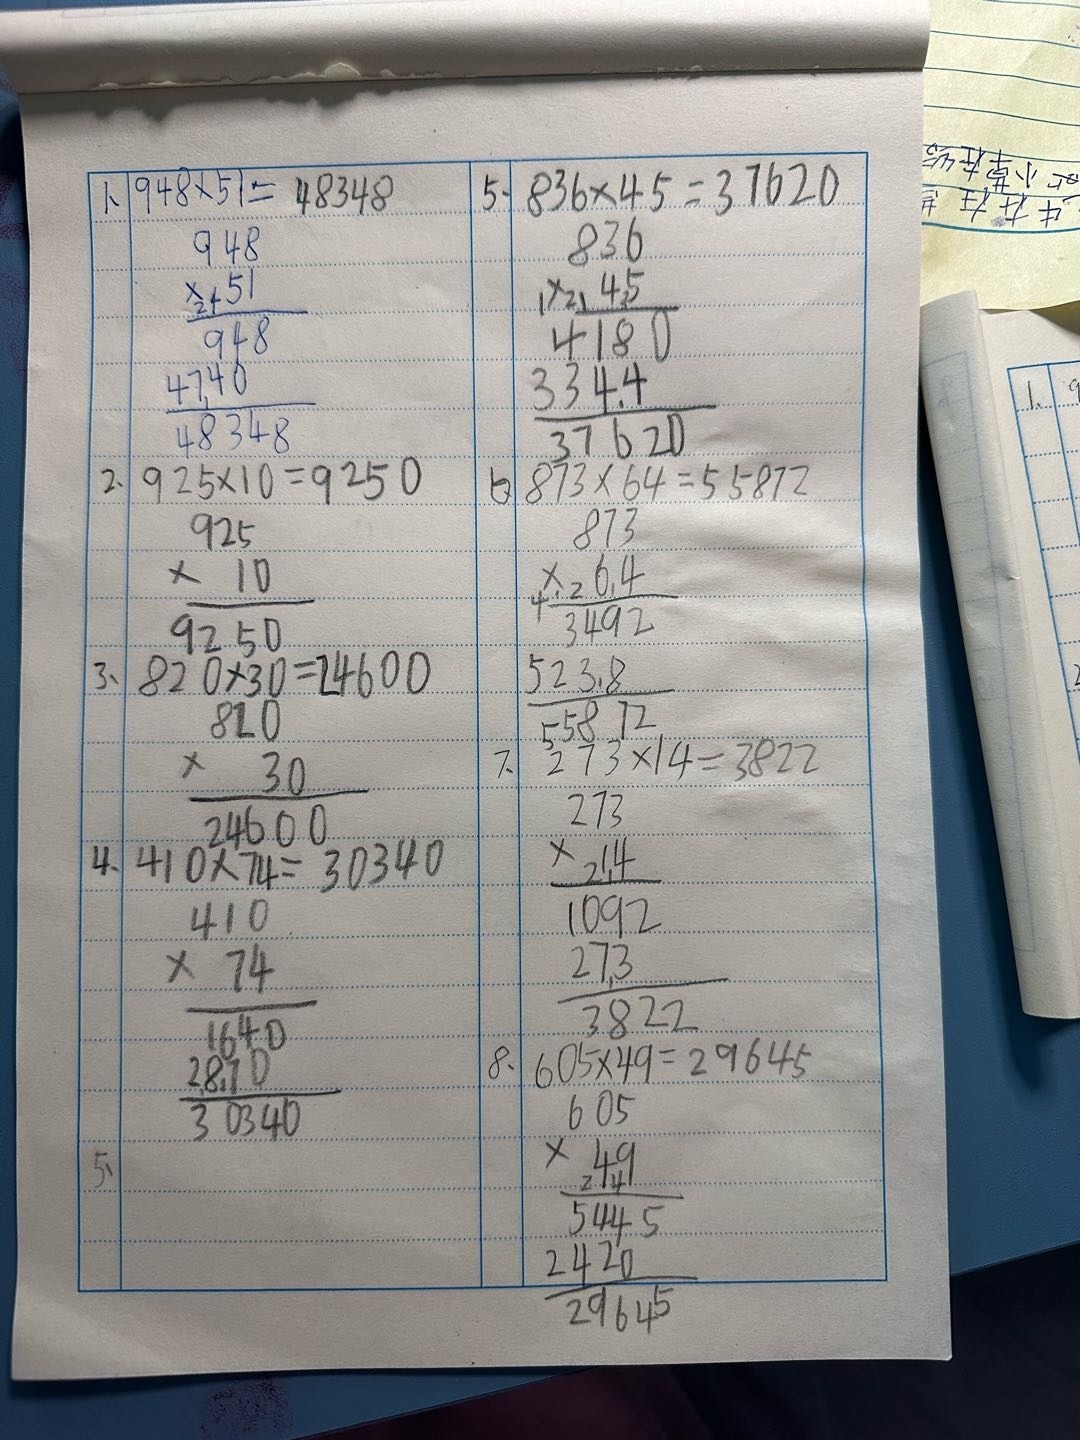 1、948×51=48348
948
×51
948
4740
48348
2、925×10=9250
925
×10
9250
3、820×30=24600
820
×30
24600
4、410×74=30340
410
×74
1640
2870
30340
5、
5、836×45=37620
836
×45
4180
3344
37620
6 873×64=55872
873
×64
3492
5238
55872
7、273×14=3822
273
×14
1092
273
3822
8、605×49=29645
605
×49
5445
2420
29645
1、